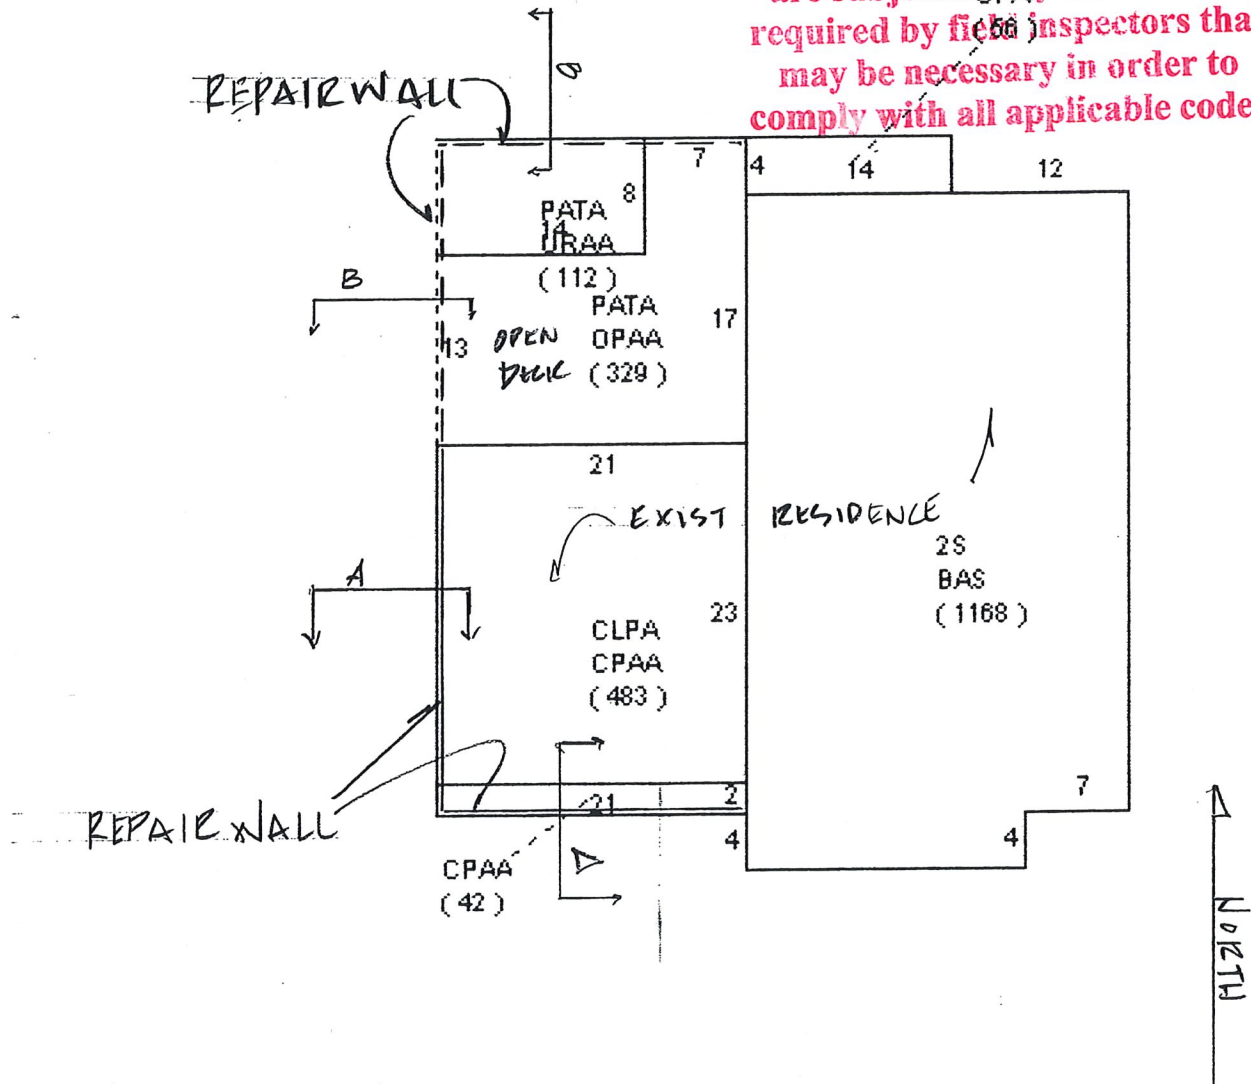 required by field inspectors tha
(56)
may be necessary in order to
comply with all applicable code
B
REPAIR WALL
7
4
14
12
8
PATA
14
URAA
(112)
B
PATA
17
13
OPEN
OPAA
DECK
(329)
21
EXIST RESIDENCE
2S
BAS
(1168)
A
23
CLPA
CPAA
(483)
7
21
2
REPAIR WALL
4
4
A
CPAA
(42)
NORTH